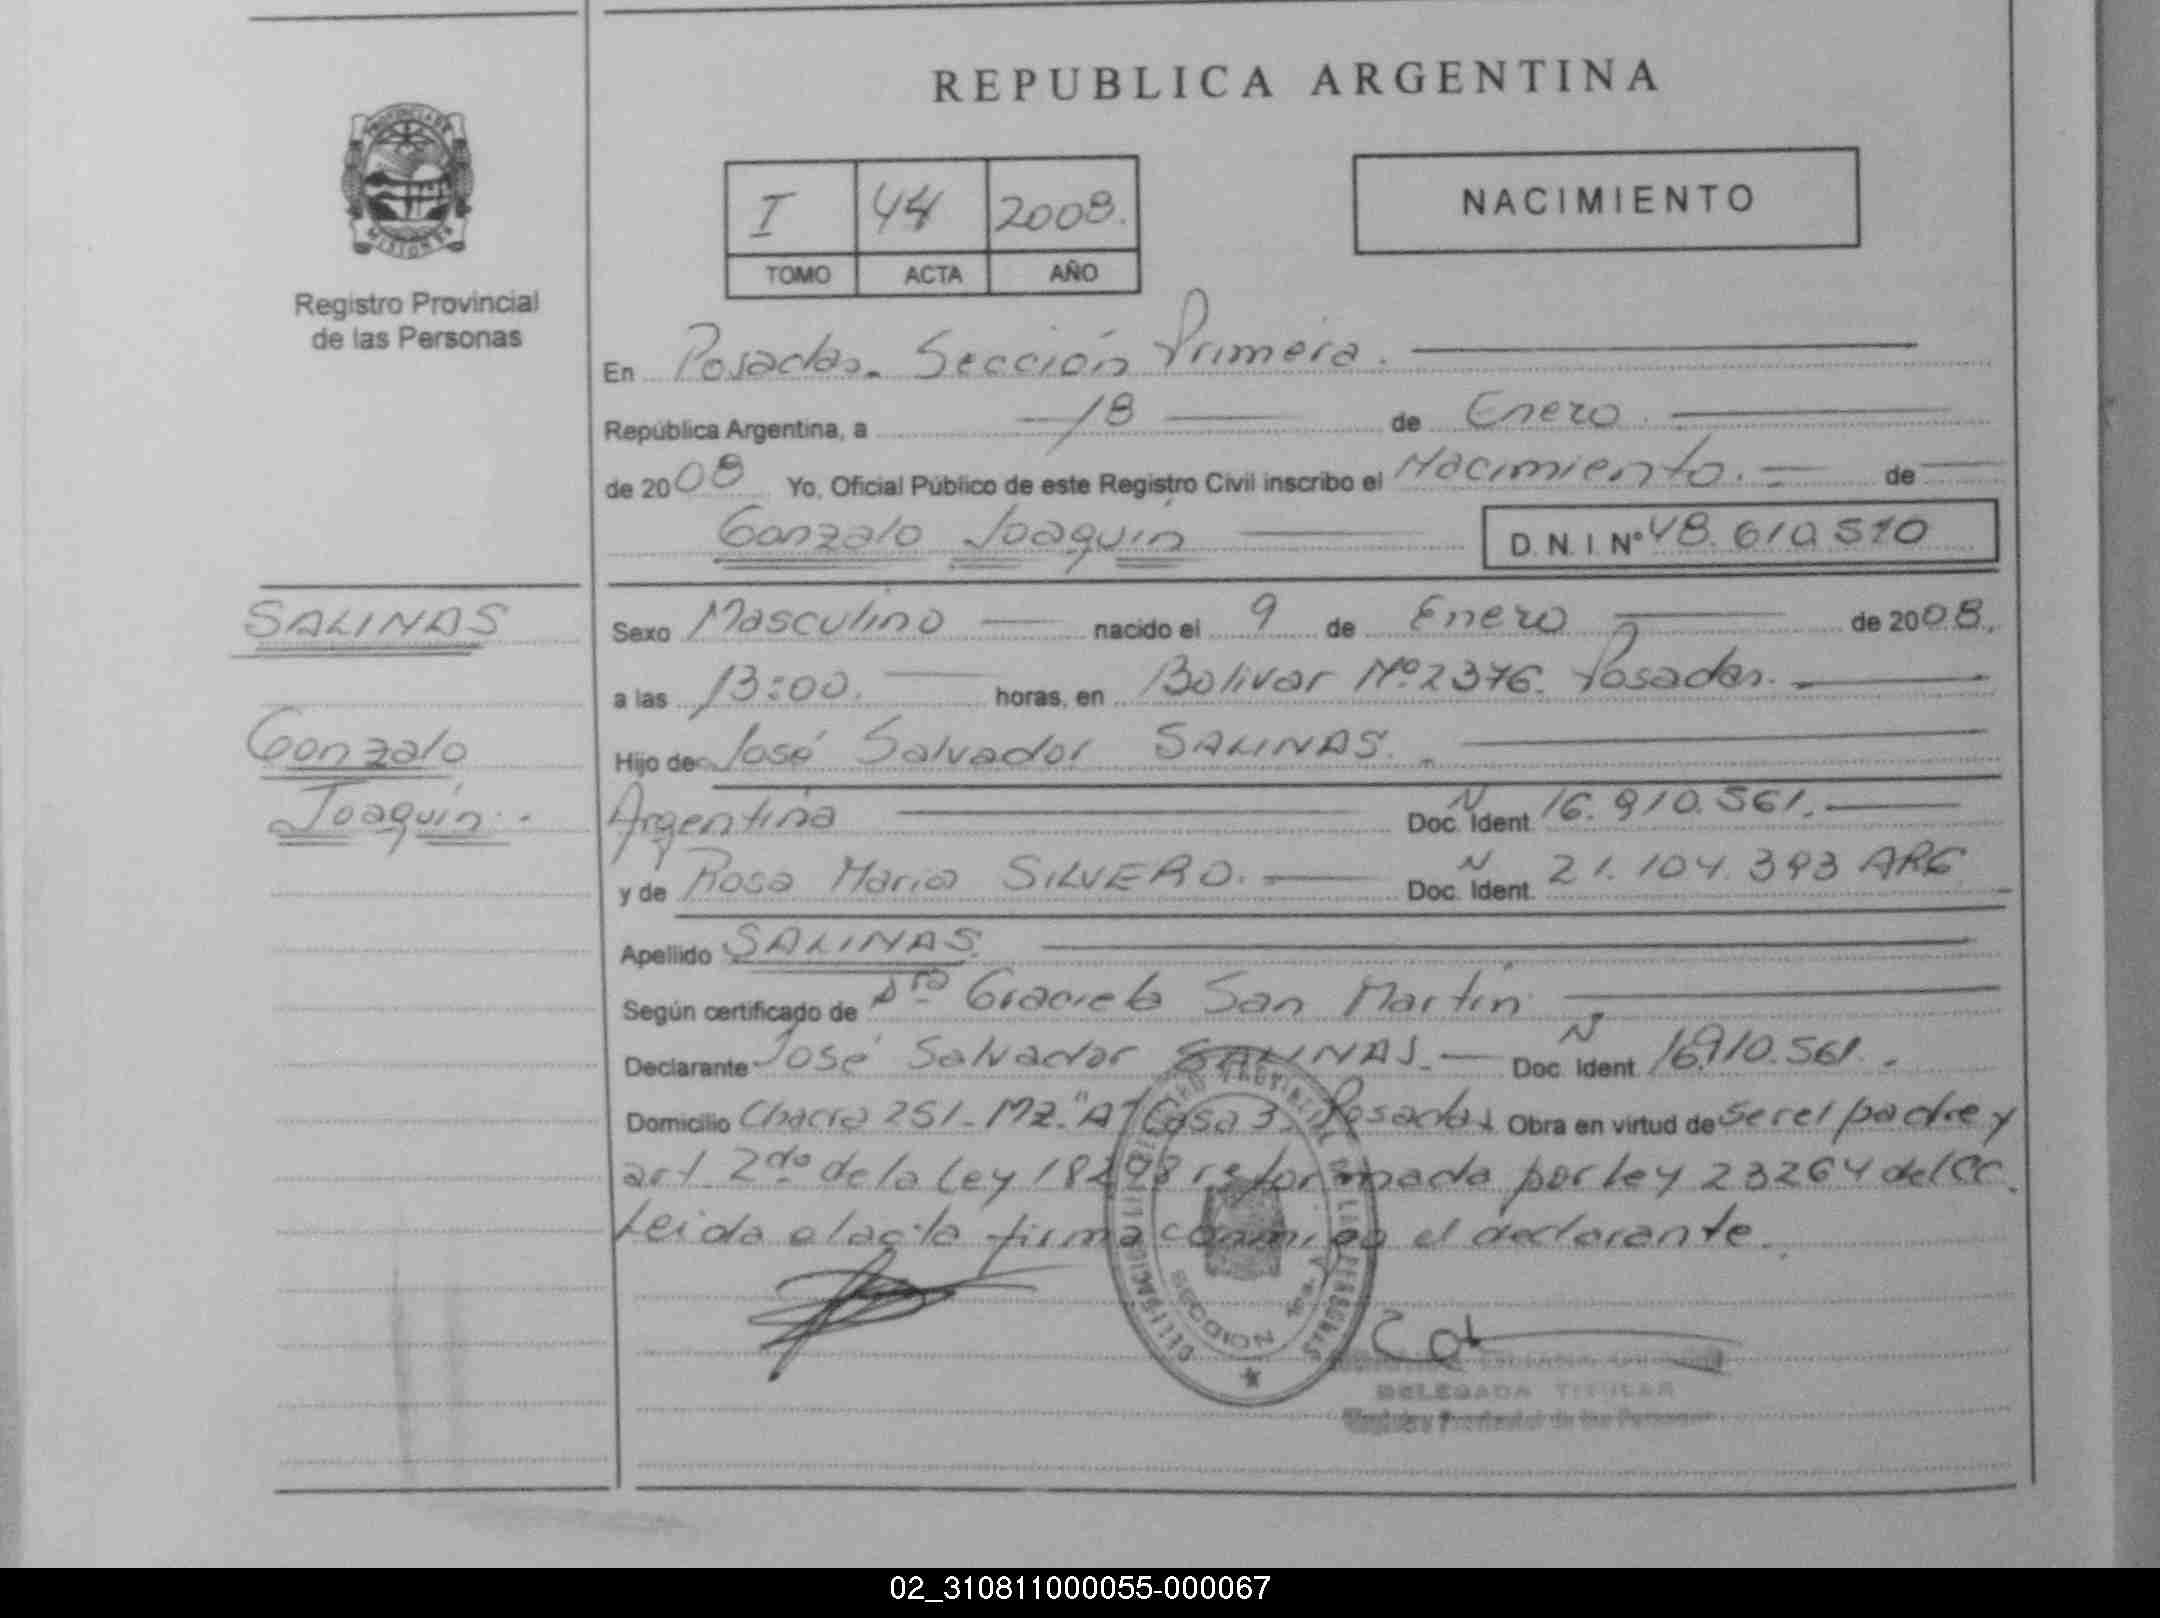 REPUBLICA ARGENTINA
PROVINCIA DE
MISIONES
Registro Provincial
de las Personas
I 44 2008.
TOMO ACTA AÑO
NACIMIENTO
En Posadas. Sección Primera.
República Argentina, a 18 de Enero.
de 2008 Yo, Oficial Público de este Registro Civil inscribo el Nacimiento. de
Gonzalo Joaquín D.N.I. Nº 48.610.510
SALINAS
Gonzalo
Joaquín.
Sexo Masculino nacido el 9 de Enero de 2008.
a las 13:00. horas, en Bolivar Nº 2376. Posadas.
Hijo de José Salvador SALINAS.
Argentina Doc. N Ident. 16.910.561.
y de Rosa Maria SILVERO. Doc. N Ident. 21.104.393 ARG
Apellido SALINAS
Según certificado de Dra Graciela San Martín
Declarante José Salvador SALINAS. Doc. N Ident. 16.910.561.
Domicilio Chacra 251-MZ."A" Casa 3. Posadas Obra en virtud de ser el padre y
art. 2do de la Ley 18248 reformada por Ley 23264 del CC.
Leida el acta firma conmigo el declarante.
SECCION 1ra.
DELEGADA TITULAR
Registro Provincial de las Personas
02_310811000055-000067